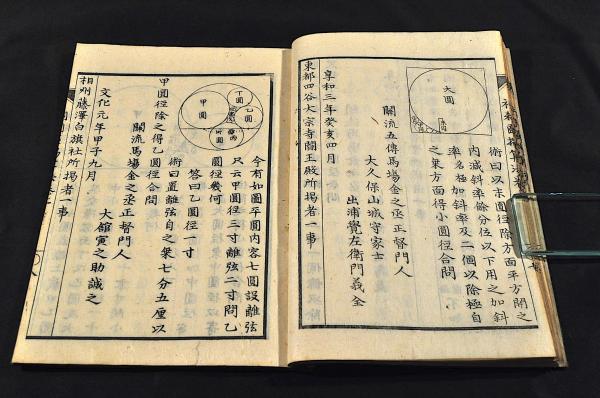 大圓
術曰以末圓径除方面平方開之
内減斜率餘分位以下用之加斜
率名極加斜率及二個以除極自
之乗方面得小圓径合問
關流五傳馬場金之丞正督門人
大久保山城守家士
出浦覺左衛門義全
享和三年癸亥四月
東都四谷大宗寺閻王殿所掲者一事
甲圓
乙圓
丁圓
今有如圖平圓内容七圓設離弦
只云甲圓径三寸離弦二寸問乙
圓径幾何
答曰乙圓径一寸
術曰置離弦自之乗七分五厘以
甲圓径除之得乙圓径合問
關流馬場金之丞正督門人
大舘寅之助誠之
文化元年甲子九月
相州藤澤白旗社所掲者一事